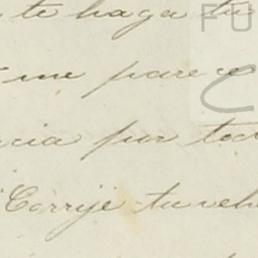 te haga tu
me parece
cia por tod
Corrije tu veh
FU
C